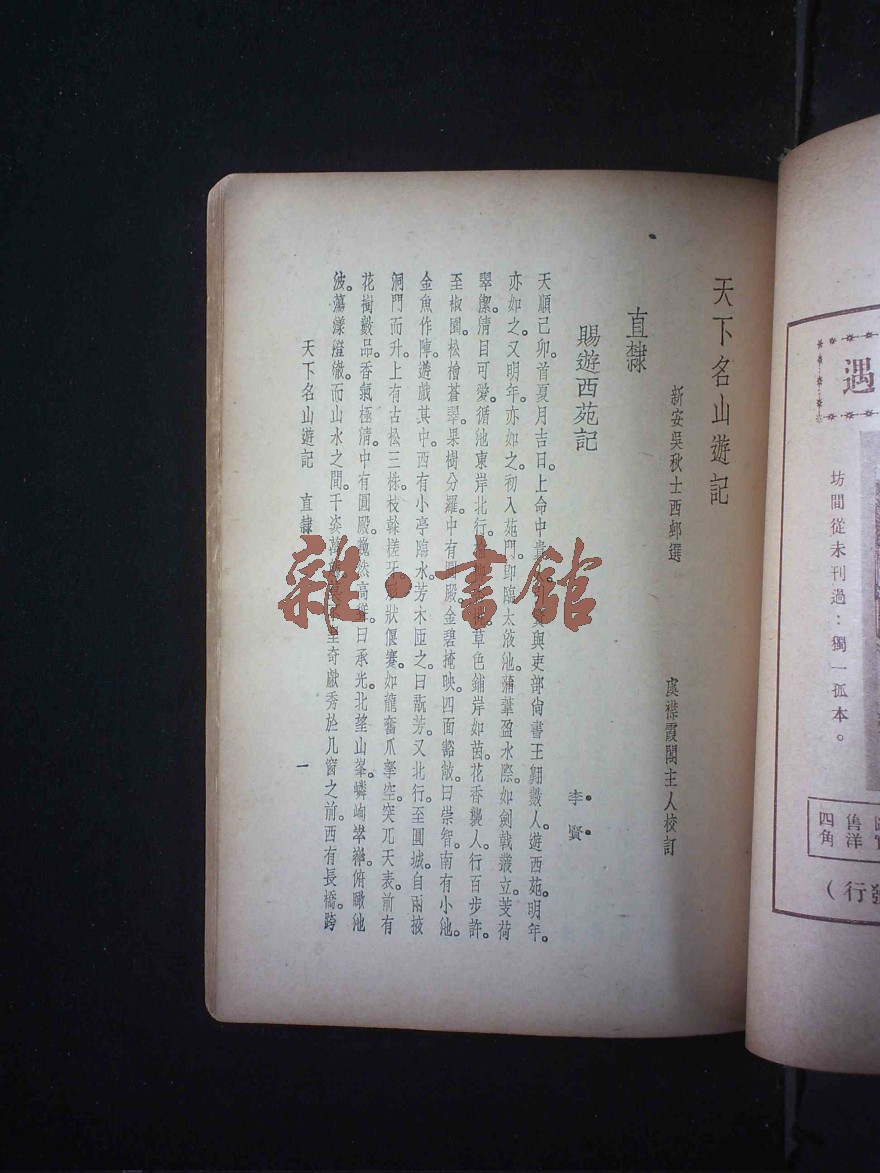 天下名山遊記
新安吳秋士西郵選
虞襟霞閣主人校訂
直隸
賜遊西苑記
李賢
天順己卯。首夏月吉日。上命中貴與吏部尙書王翶數人。遊西苑。明年。
亦如之。又明年。亦如之。初入苑門。卽臨太液池。蒲葦盈水際。如劍戟叢立。芰荷
翠潔。淸目可愛。循池東岸北行。草色鋪岸如茵。花香襲人。行百步許。
至椒園。松檜蒼翠。果樹分羅。中有圓殿。金碧掩映。四面豁敞。曰崇智。南有小池。
金魚作陣。遊戲其中。西有小亭臨水。芳木匝之。曰翫芳。又北行。至圓城。自兩掖
洞門而升。上有古松三株。枝幹槎牙。形狀偃蹇。如龍奮爪拏空。突兀天表。前有
花樹數品。香氣極淸。中有圓殿。巍然高聳。曰承光。北望山峯。嶙峋崒嵂。俯瞰池
波。蕩漾澄徹。而山水之間。千姿萬奇獻秀於几窗之前。西有長橋。跨
天下名山遊記 直隸
一
雜·書館
遇
坊間從未刊過：獨一孤本。
魯洋
四角
發行)